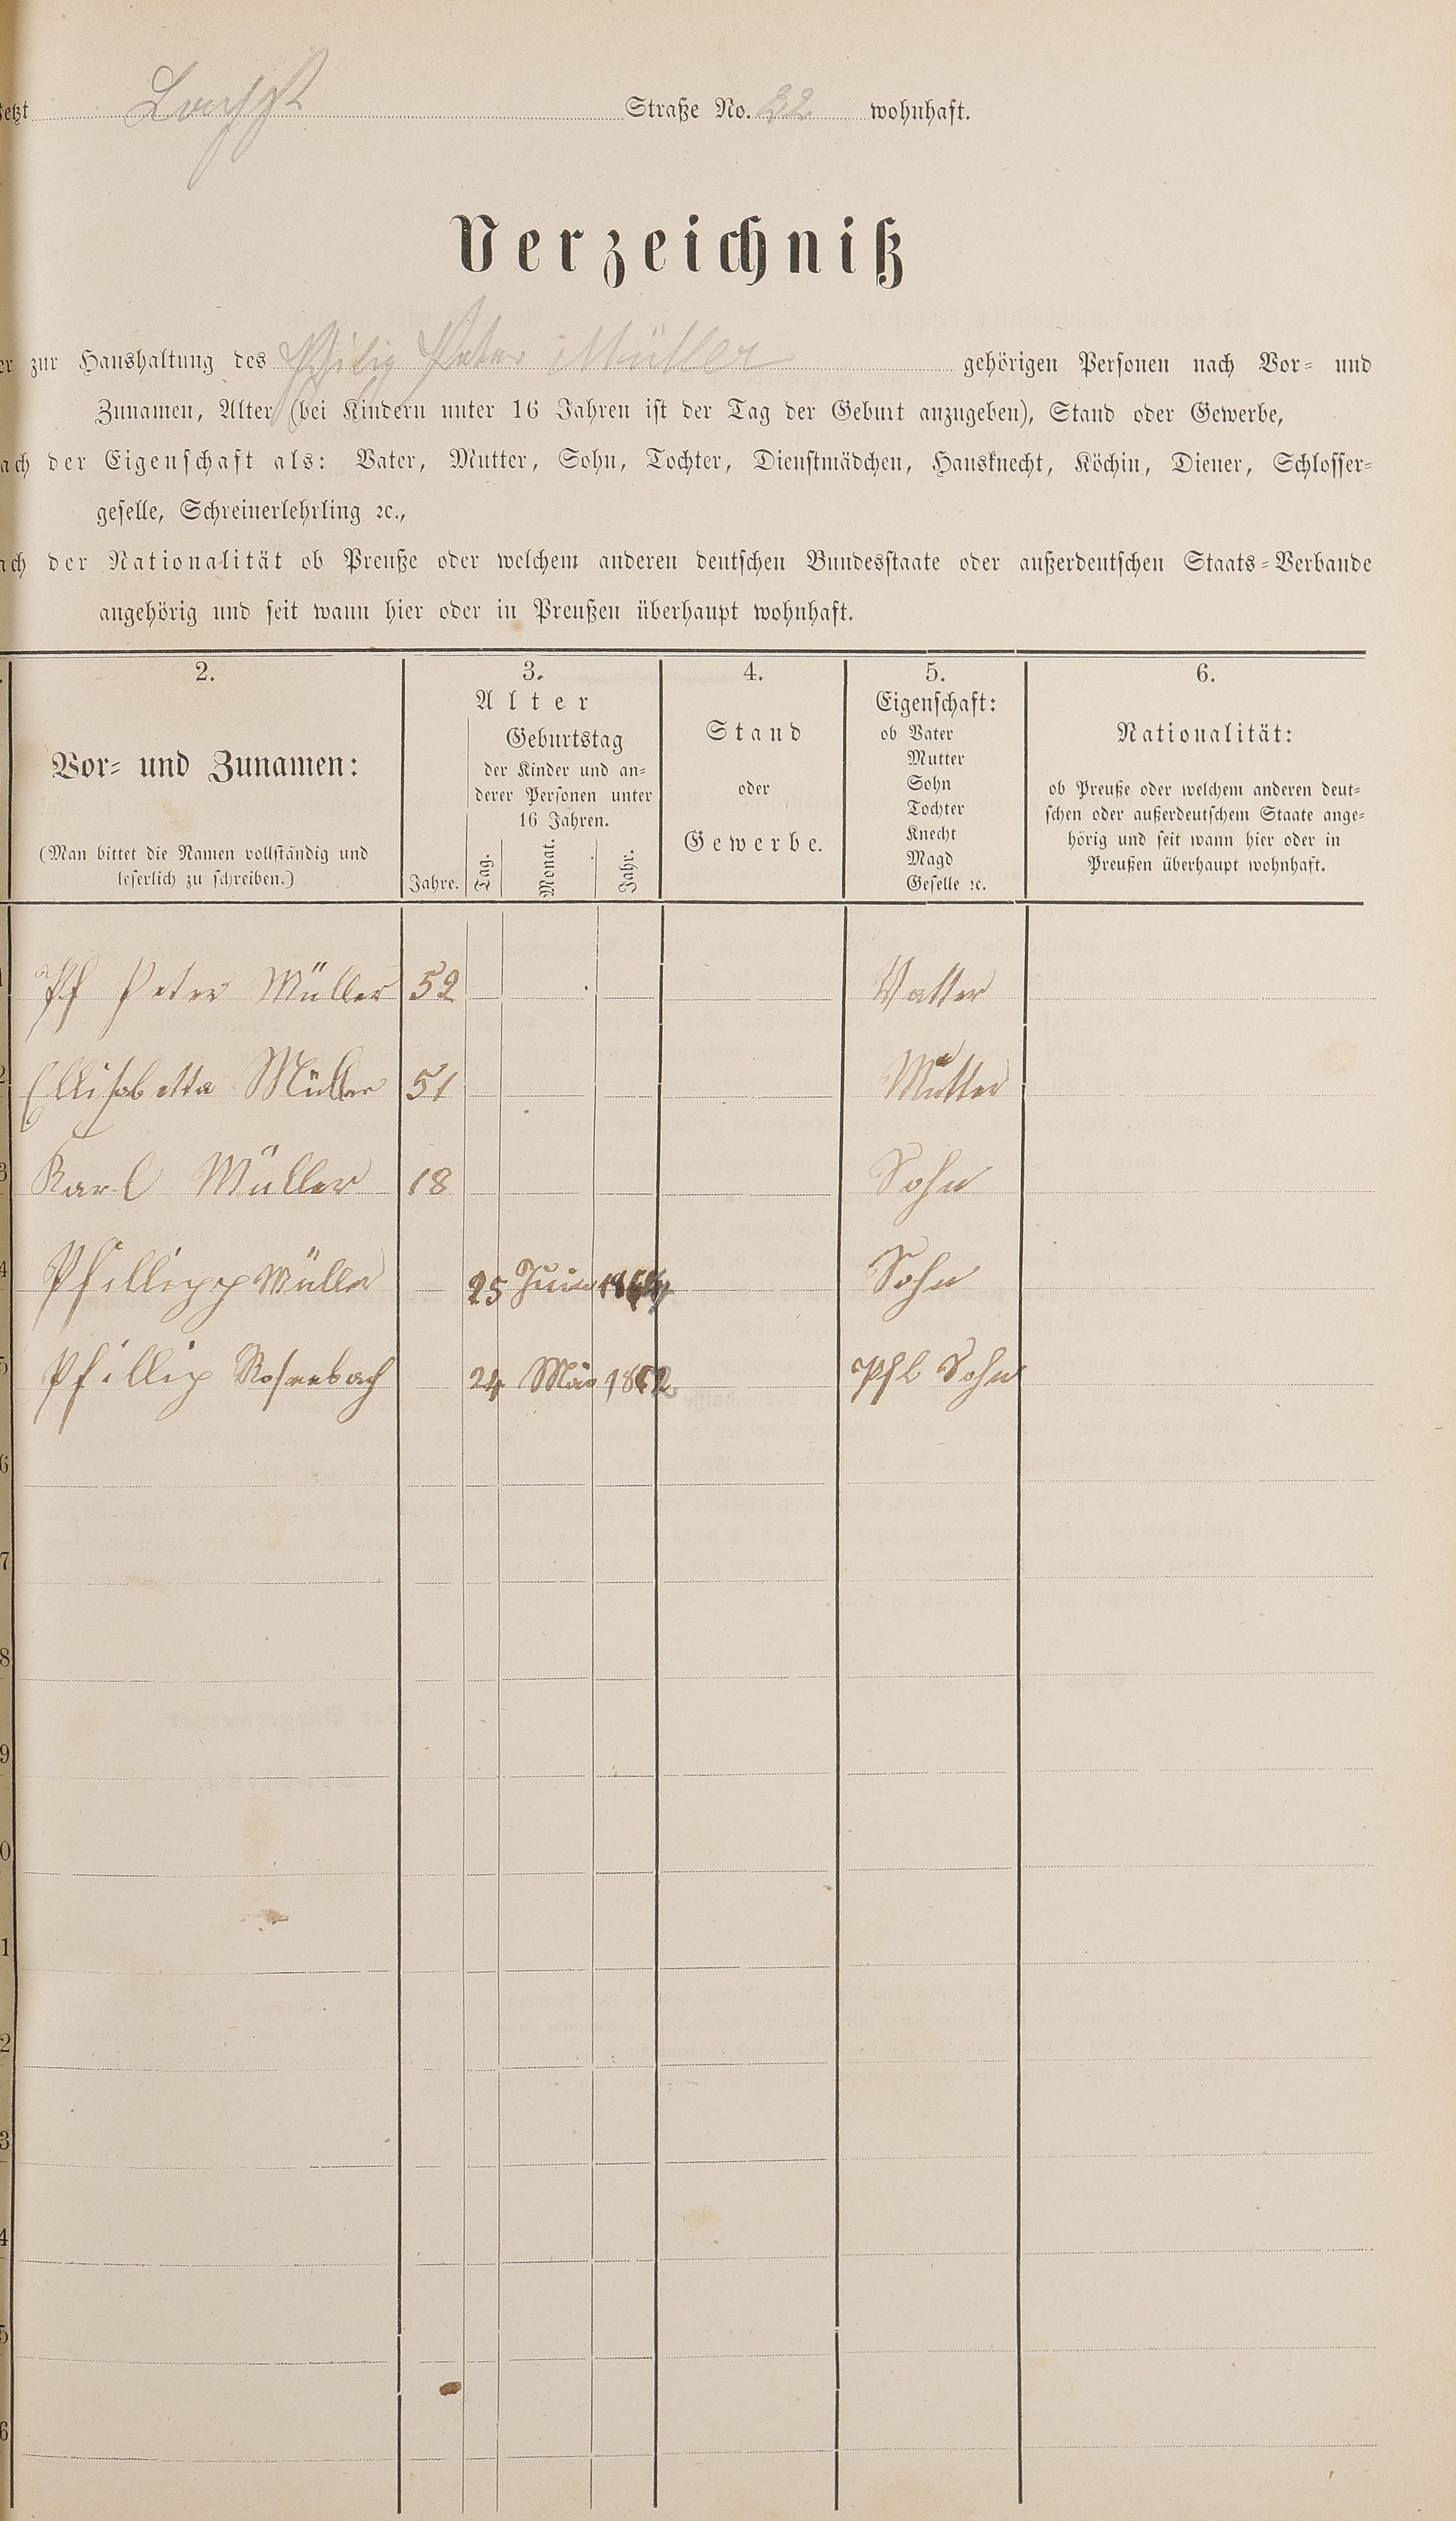 etzt Straße No. 22 wohnhaft.
Verzeichniß
er zur Haushaltung des Philip Peter Müller gehörigen Personen nach Vor- und
Zunamen, Alter (bei Kindern unter 16 Jahren ist der Tag der Geburt anzugeben), Stand oder Gewerbe,
ach der Eigenschaft als: Vater, Mutter, Sohn, Tochter, Dienstmädchen, Hausknecht, Köchin, Diener, Schlosser-
geselle, Schreinerlehrling ꝛc.,
ach der Nationalität ob Preuße oder welchem anderen deutschen Bundesstaate oder außerdeutschen Staats-Verbande
angehörig und seit wann hier oder in Preußen überhaupt wohnhaft.
2. 3. 4. 5. 6.
Vor- und Zunamen:
(Man bittet die Namen vollständig und
leserlich zu schreiben.)
Alter
Jahre.
Geburtstag
der Kinder und an-
derer Personen unter
16 Jahren.
Tag. Monat. Jahr.
Stand
oder
Gewerbe.
Eigenschaft:
ob Vater
Mutter
Sohn
Tochter
Knecht
Magd
Geselle ꝛc.
Nationalität:
ob Preuße oder welchem anderen deut-
schen oder außerdeutschem Staate ange-
hörig und seit wann hier oder in
Preußen überhaupt wohnhaft.
1 Pf Peter Müller 52 Vatter
2 Ellisabetta Müller 51 Mutter
3 Karl Müller 18 Sohn
4 Phillipp Müller 25 Juni Sohn
5 Phillip Rosenbach 24 Mär 1862 Pfl Sohn
6
7
8
9
0
1
2
3
4
5
6